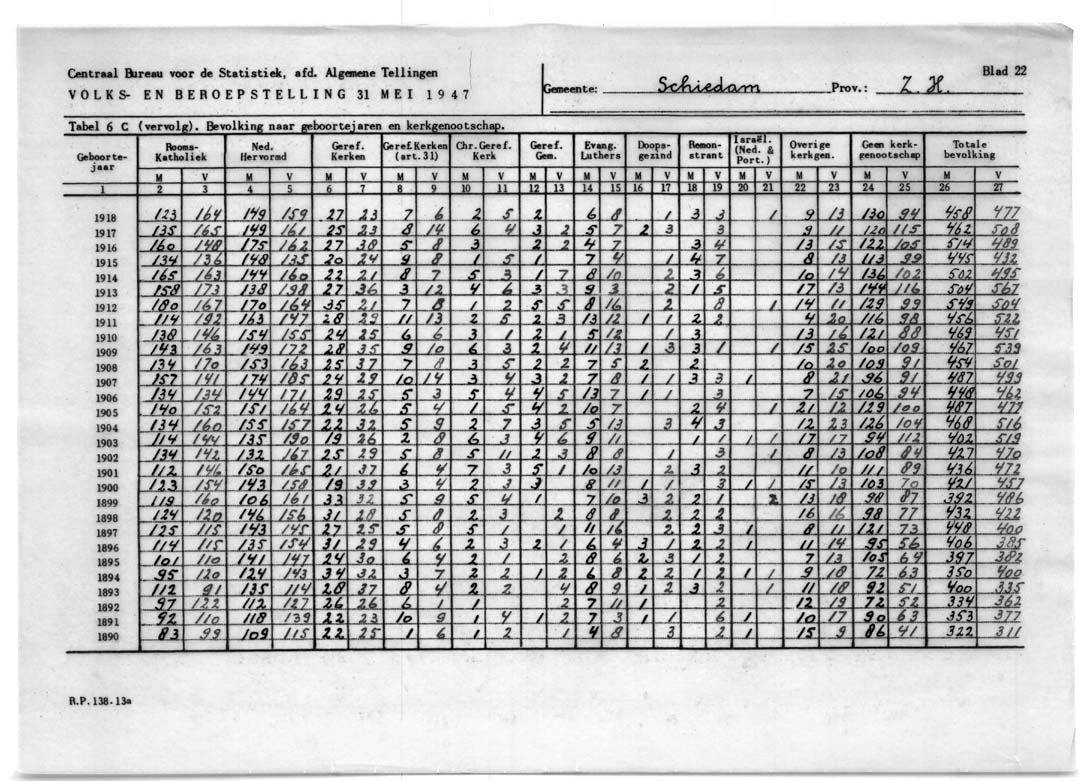 Centraal Bureau voor de Statistiek, afd. Algemene Tellingen
VOLKS- EN BEROEPSTELLING 31 MEI 1947
Gemeente: Schiedam Prov.: Z. H. Blad 22
Tabel 6 C (vervolg). Bevolking naar geboortejaren en kerkgenootschap.
Geboorte-jaar Rooms-Katholiek Ned. Hervormd Geref. Kerken Geref.Kerken (art.31) Chr.Geref. Kerk Geref. Gem. Evang. Luthers Doops-gezind Remon-strant Israël. (Ned. & Port.) Overige kerkgen. Geen kerk-genootschap Totale bevolking
M V M V M V M V M V M V M V M V M V M V M V M V M V
1 2 3 4 5 6 7 8 9 10 11 12 13 14 15 16 17 18 19 20 21 22 23 24 25 26 27
1918 123 164 149 159 27 23 7 6 2 5 2 6 8 1 3 3 1 9 13 130 94 458 477
1917 135 165 149 161 25 23 8 14 6 4 3 2 5 7 2 3 3 9 11 120 115 462 508
1916 160 148 175 162 27 38 5 8 3 2 2 4 7 3 4 13 15 122 105 514 489
1915 134 136 148 135 20 24 9 8 1 5 1 7 4 1 4 7 8 13 113 99 445 432
1914 165 163 144 160 22 21 8 7 5 3 1 7 8 10 2 3 6 10 14 136 102 502 495
1913 158 173 138 198 27 36 3 12 4 6 3 3 9 3 2 1 5 17 13 144 116 504 567
1912 180 167 170 164 35 21 7 8 1 2 5 5 8 16 2 8 1 14 11 129 99 549 504
1911 114 192 163 147 28 29 11 13 2 5 2 3 13 12 1 1 2 2 4 20 116 98 456 522
1910 138 146 154 155 24 25 6 6 3 1 2 1 5 12 1 3 13 16 121 88 469 451
1909 143 163 149 172 28 35 9 10 6 3 2 4 11 13 1 3 3 1 1 15 25 100 109 467 539
1908 134 170 153 163 25 37 7 8 3 5 2 2 7 5 2 2 10 20 109 91 454 501
1907 157 141 174 185 24 29 10 14 3 4 3 2 7 8 1 1 3 3 1 8 21 96 91 487 499
1906 134 134 144 171 29 25 5 3 5 4 4 5 13 7 1 1 3 7 15 106 94 448 462
1905 140 152 151 164 24 26 5 4 1 5 4 2 10 7 2 4 1 21 12 129 100 487 477
1904 134 160 155 157 22 32 5 9 2 7 3 5 5 13 3 4 3 12 23 126 104 468 516
1903 114 144 135 190 19 26 2 8 6 3 4 6 9 11 1 1 1 1 17 17 94 112 402 519
1902 134 142 132 167 25 29 5 8 5 11 2 3 8 8 1 3 1 8 13 108 84 427 470
1901 112 146 150 165 21 37 6 4 7 3 5 1 10 13 2 3 2 11 10 111 89 436 472
1900 123 154 143 158 19 39 3 4 2 3 3 8 11 1 1 3 1 1 15 13 103 70 421 457
1899 119 160 106 161 33 32 5 9 5 4 1 7 10 3 2 2 1 2 13 18 98 87 392 486
1898 124 120 146 156 31 28 5 8 2 3 2 8 8 2 2 2 16 16 98 77 432 422
1897 125 115 143 145 27 25 5 8 5 1 1 11 16 2 2 3 1 8 11 121 73 448 400
1896 114 115 135 154 31 29 4 6 2 3 2 1 6 4 3 1 2 2 1 11 14 95 56 406 385
1895 101 110 141 147 24 30 6 4 2 1 2 8 6 2 3 1 2 7 13 105 64 397 382
1894 95 120 124 143 34 32 3 7 2 2 1 2 6 8 2 2 1 2 1 1 9 18 72 63 350 400
1893 112 91 135 114 28 37 8 4 2 2 4 8 9 1 2 3 2 1 11 18 92 51 400 335
1892 97 122 112 127 26 26 6 1 1 2 7 11 1 2 12 19 72 52 334 362
1891 92 110 118 139 22 23 10 9 1 4 1 2 7 3 1 1 6 1 10 17 90 63 353 377
1890 83 99 109 115 22 25 1 6 1 2 1 4 8 3 2 1 15 9 86 41 322 311
R.P.138-13a